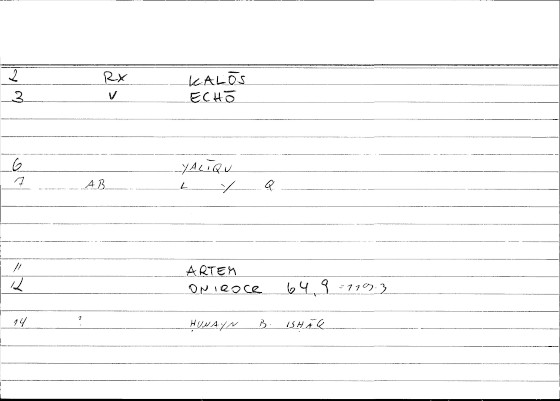 2 RX KALŌS
3 V ECHŌ
6 YALĪQU
7 AB L Y Q
11 ARTEM
12 ONIROCR 64,9 = 119.3
14 ? ḤUNAYN B. ISḤĀQ